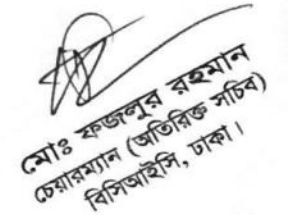 মোঃ ফজলুর রহমান
চেয়ারম্যান (অতিরিক্ত সচিব)
বিসিআইসি, ঢাকা।